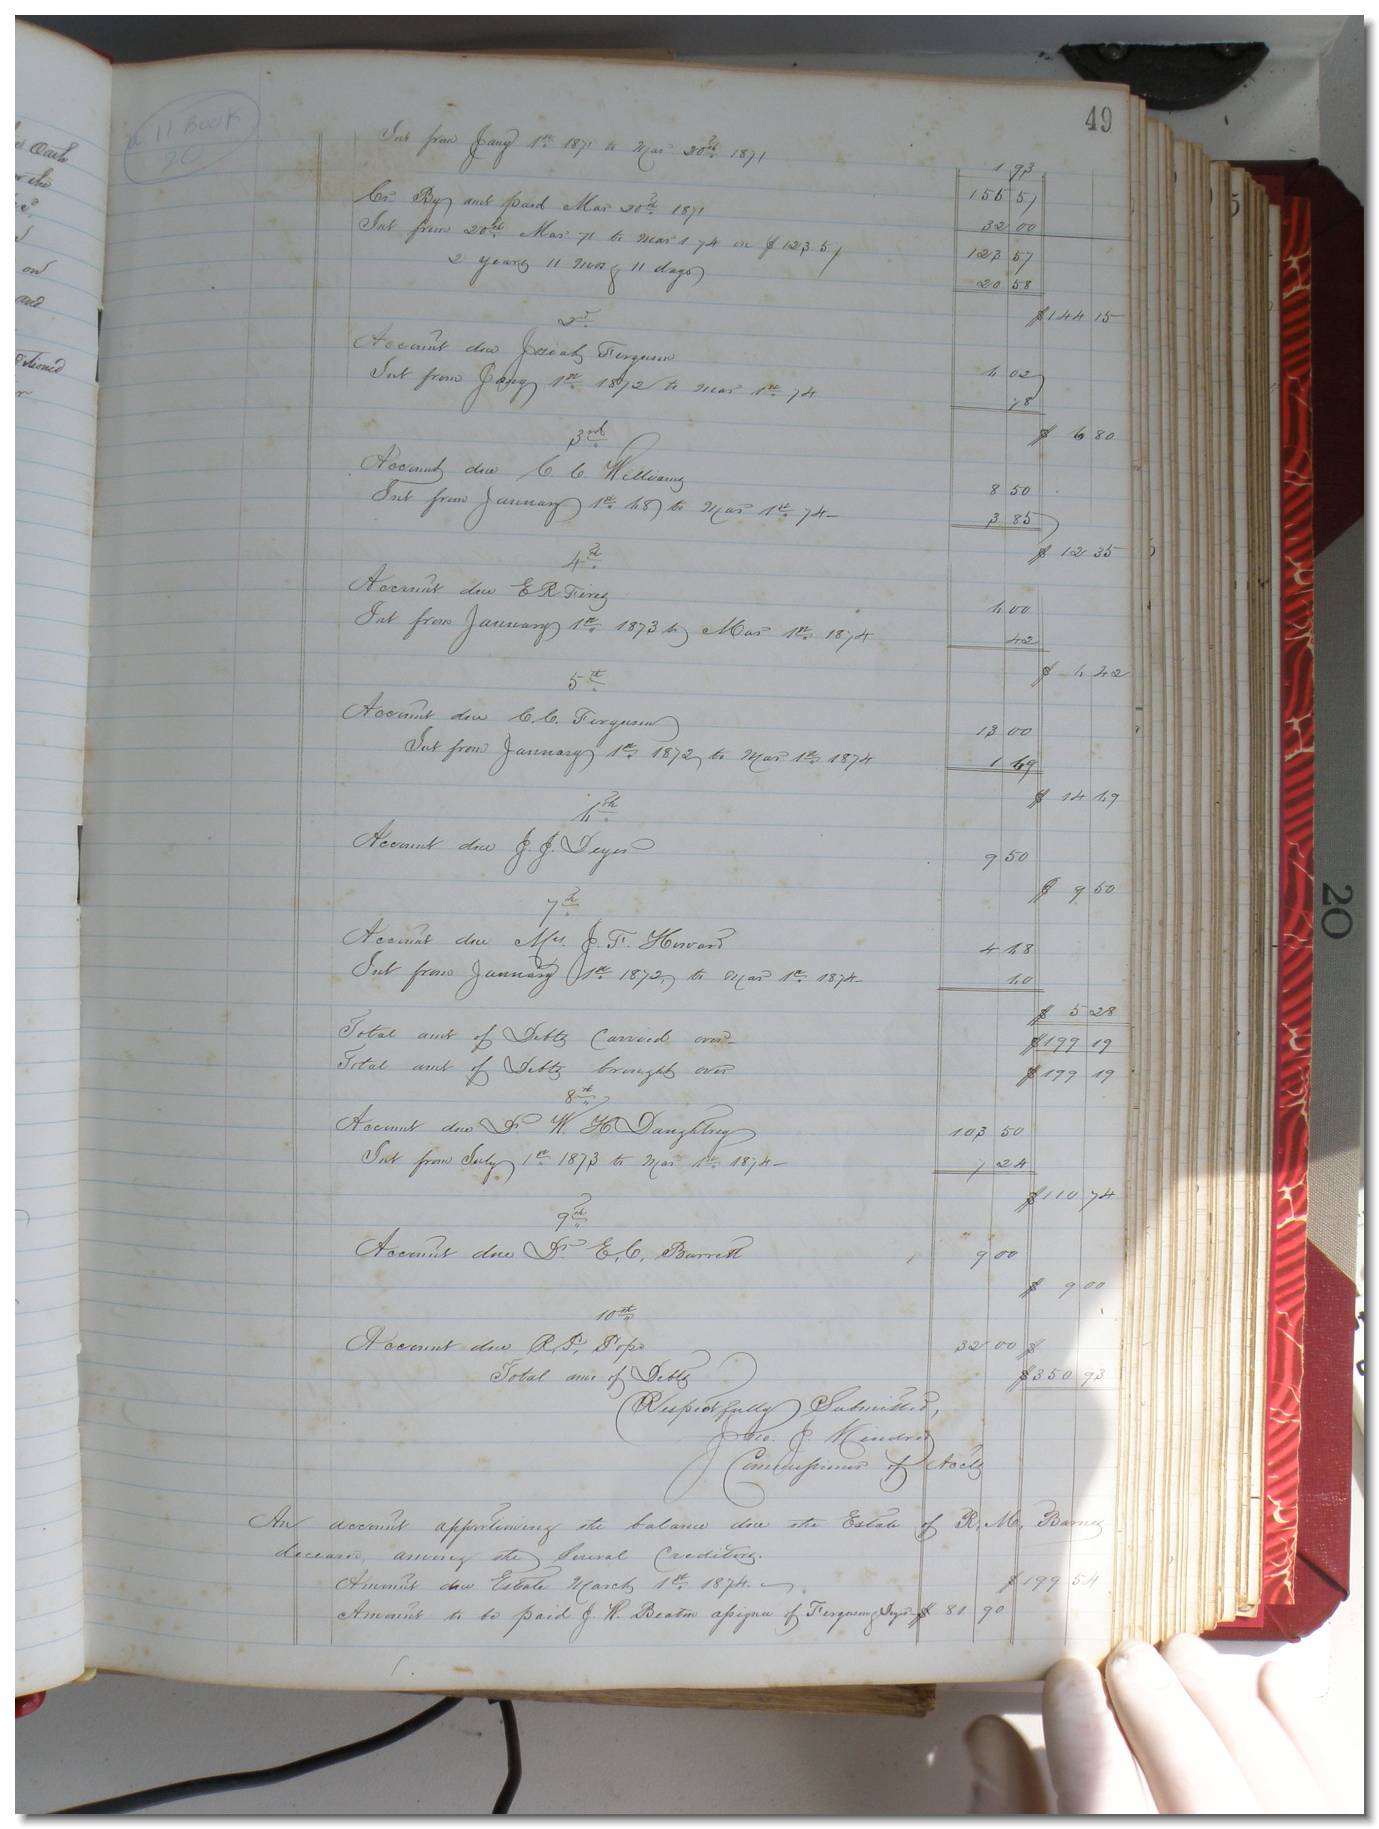 49
Will Book
20
Int from Jany 1st 1871 to Mar 20th 1871
1 93
155 57
Cr By amt paid Mar 20th 1871
32 00
Int from 20th Mar 71 to Mar 1 74 on $123 57
123 57
2 years 11 mos & 11 days
20 58
$144 15
2nd
Account due Ferguson
6 02
Int from Jany 1st 1872 to Mar 1st 74
78
$ 6 80
3rd
Account due C C Williams
8 50
Int from January 1st 68 to Mar 1st 74
3 85
$ 12 35
4th
Account due E R
6 00
Int from January 1st 1873 to Mar 1st 1874
42
$ 6 42
5th
Account due C. C. Ferguson
13 00
Int from January 1st 1872 to Mar 1st 1874
1 69
$ 14 69
6th
Account due J. J. Deyer
9 50
$ 9 50
7th
Account due Mrs. J. F. Howard
4 68
Int from January 1st 1872 to Mar 1st 1874
60
$ 5 28
Total amt of Debts carried over
$199 19
Total amt of Debts brought over
$199 19
8th
Account due Dr W. H. Daughtrey
103 50
Int from July 1st 1873 to Mar 1st 1874
7 24
$110 74
9th
Account due Dr. E. C. Barrett
9 00
$ 9 00
10th
Account due R. F.
32 00 $
Total amt of Debts
$350 93
Respectfully Submitted,
Jno. J. Kindred
Commissioner of Accts
An account apportioning the balance due the Estate of R. M. Barnes
deceased, among the several Creditors.
Amount due Estate March 1st 1874.
$199 54
Amount to be paid J. R. Beaton assignee of Ferguson $ 81 90
20